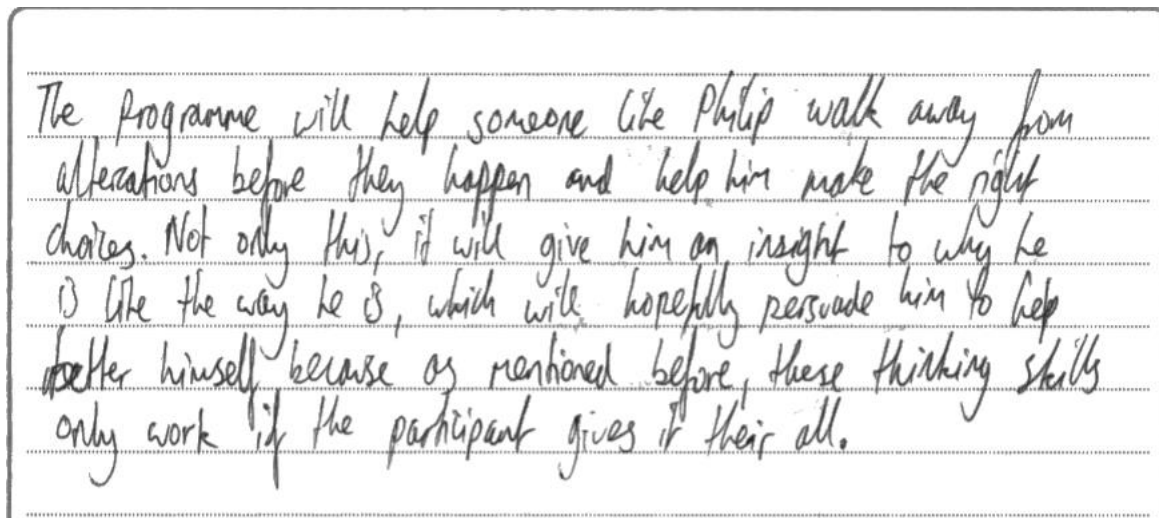 The programme will help someone like Philip walk away from
altercations before they happen and help him make the right
choices. Not only this, it will give him an insight to why he
is like the way he is, which will hopefully persuade him to help
better himself, because as mentioned before, these thinking skills
only work if the participant gives it their all.